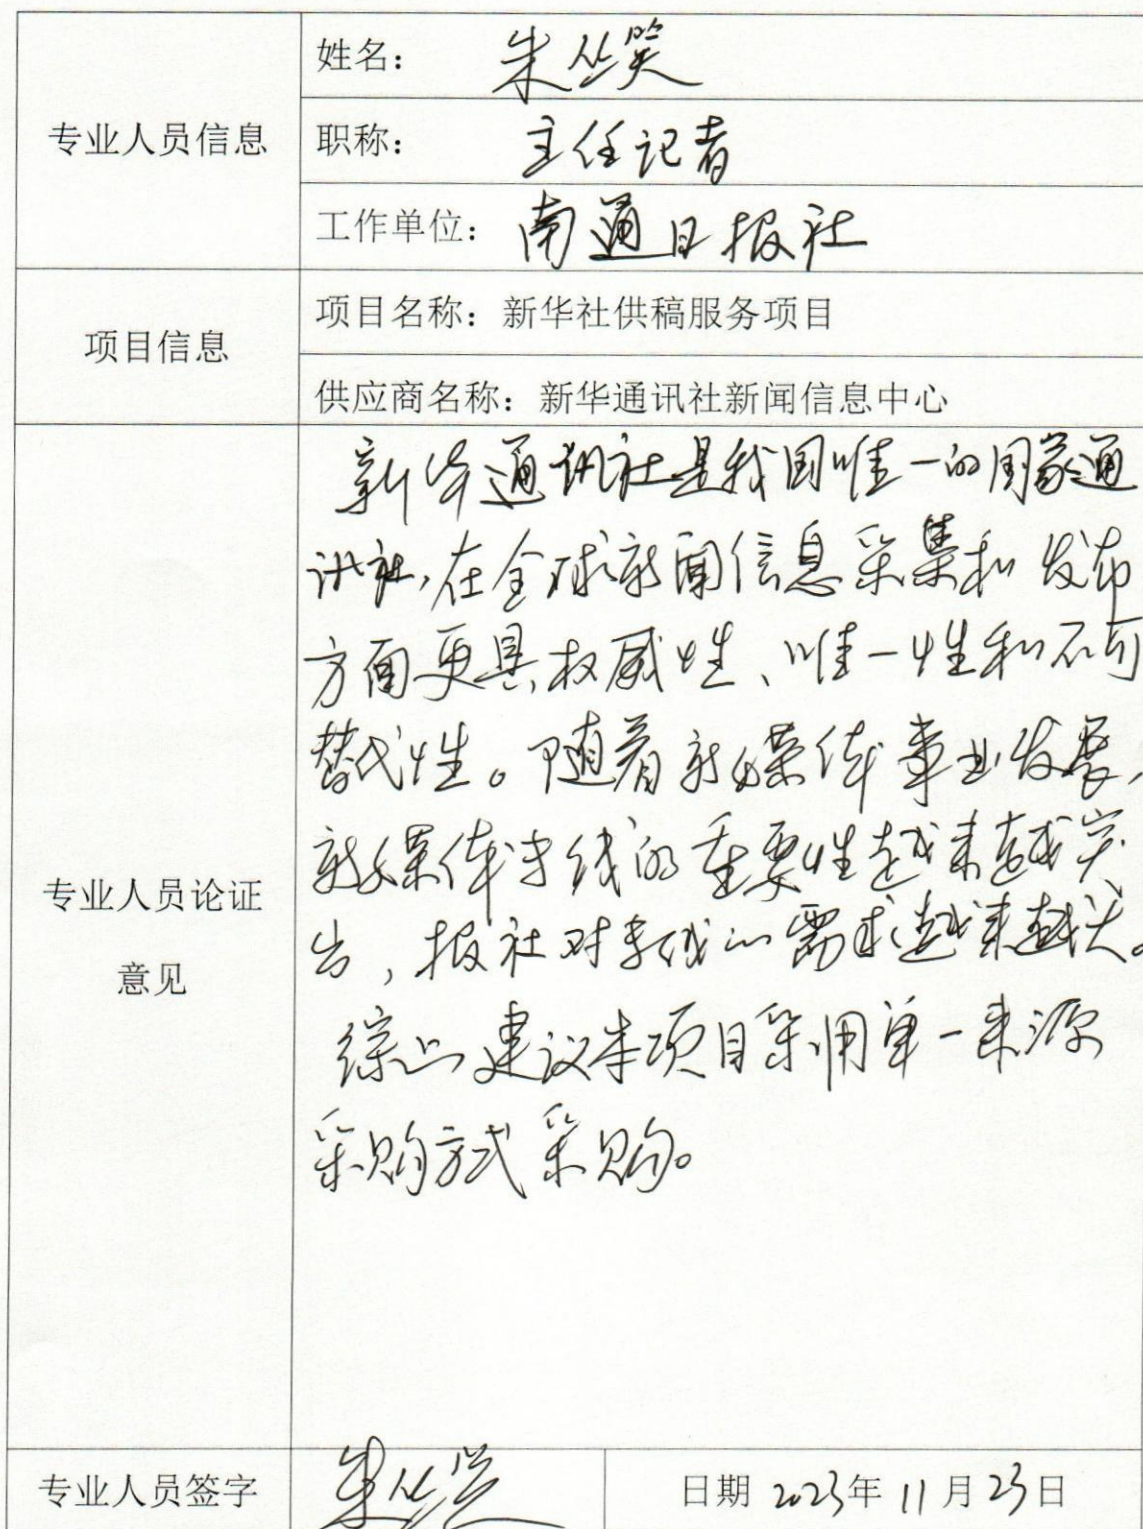 专业人员信息
姓名：朱丛笑
职称：主任记者
工作单位：南通日报社
项目信息
项目名称：新华社供稿服务项目
供应商名称：新华通讯社新闻信息中心
专业人员论证
意见
新华通讯社是我国唯一的国家通
讯社，在全球新闻信息采集和发布
方面更具权威性、唯一性和不可
替代性。随着新媒体事业发展，
新媒体专线的重要性越来越突
出，报社对专线的需求越来越大。
综上建议本项目采用单一来源
采购方式采购。
专业人员签字
朱丛笑
日期 2023年 11月23日